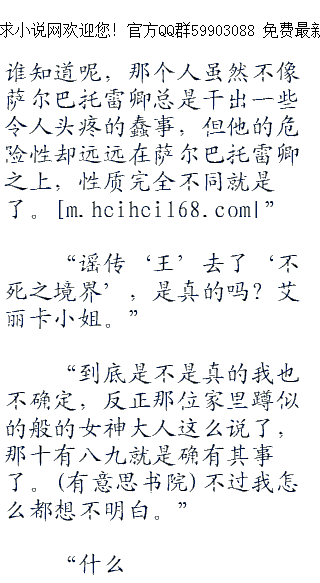 求小说网欢迎您! 官方QQ群59903088 免费最新
谁知道呢，那个人虽然不像
萨尔巴托雷卿总是干出一些
令人头疼的蠢事，但他的危
险性却远远在萨尔巴托雷卿
之上，性质完全不同就是
了。[m.hcihcil68.com|”
“谣传‘王’去了‘不
死之境界’，是真的吗？艾
丽卡小姐。”
“到底是不是真的我也
不确定，反正那位家里蹲似
的般的女神大人这么说了，
那十有八九就是确有其事
了。(有意思书院)不过我怎
么都想不明白。”
“什么